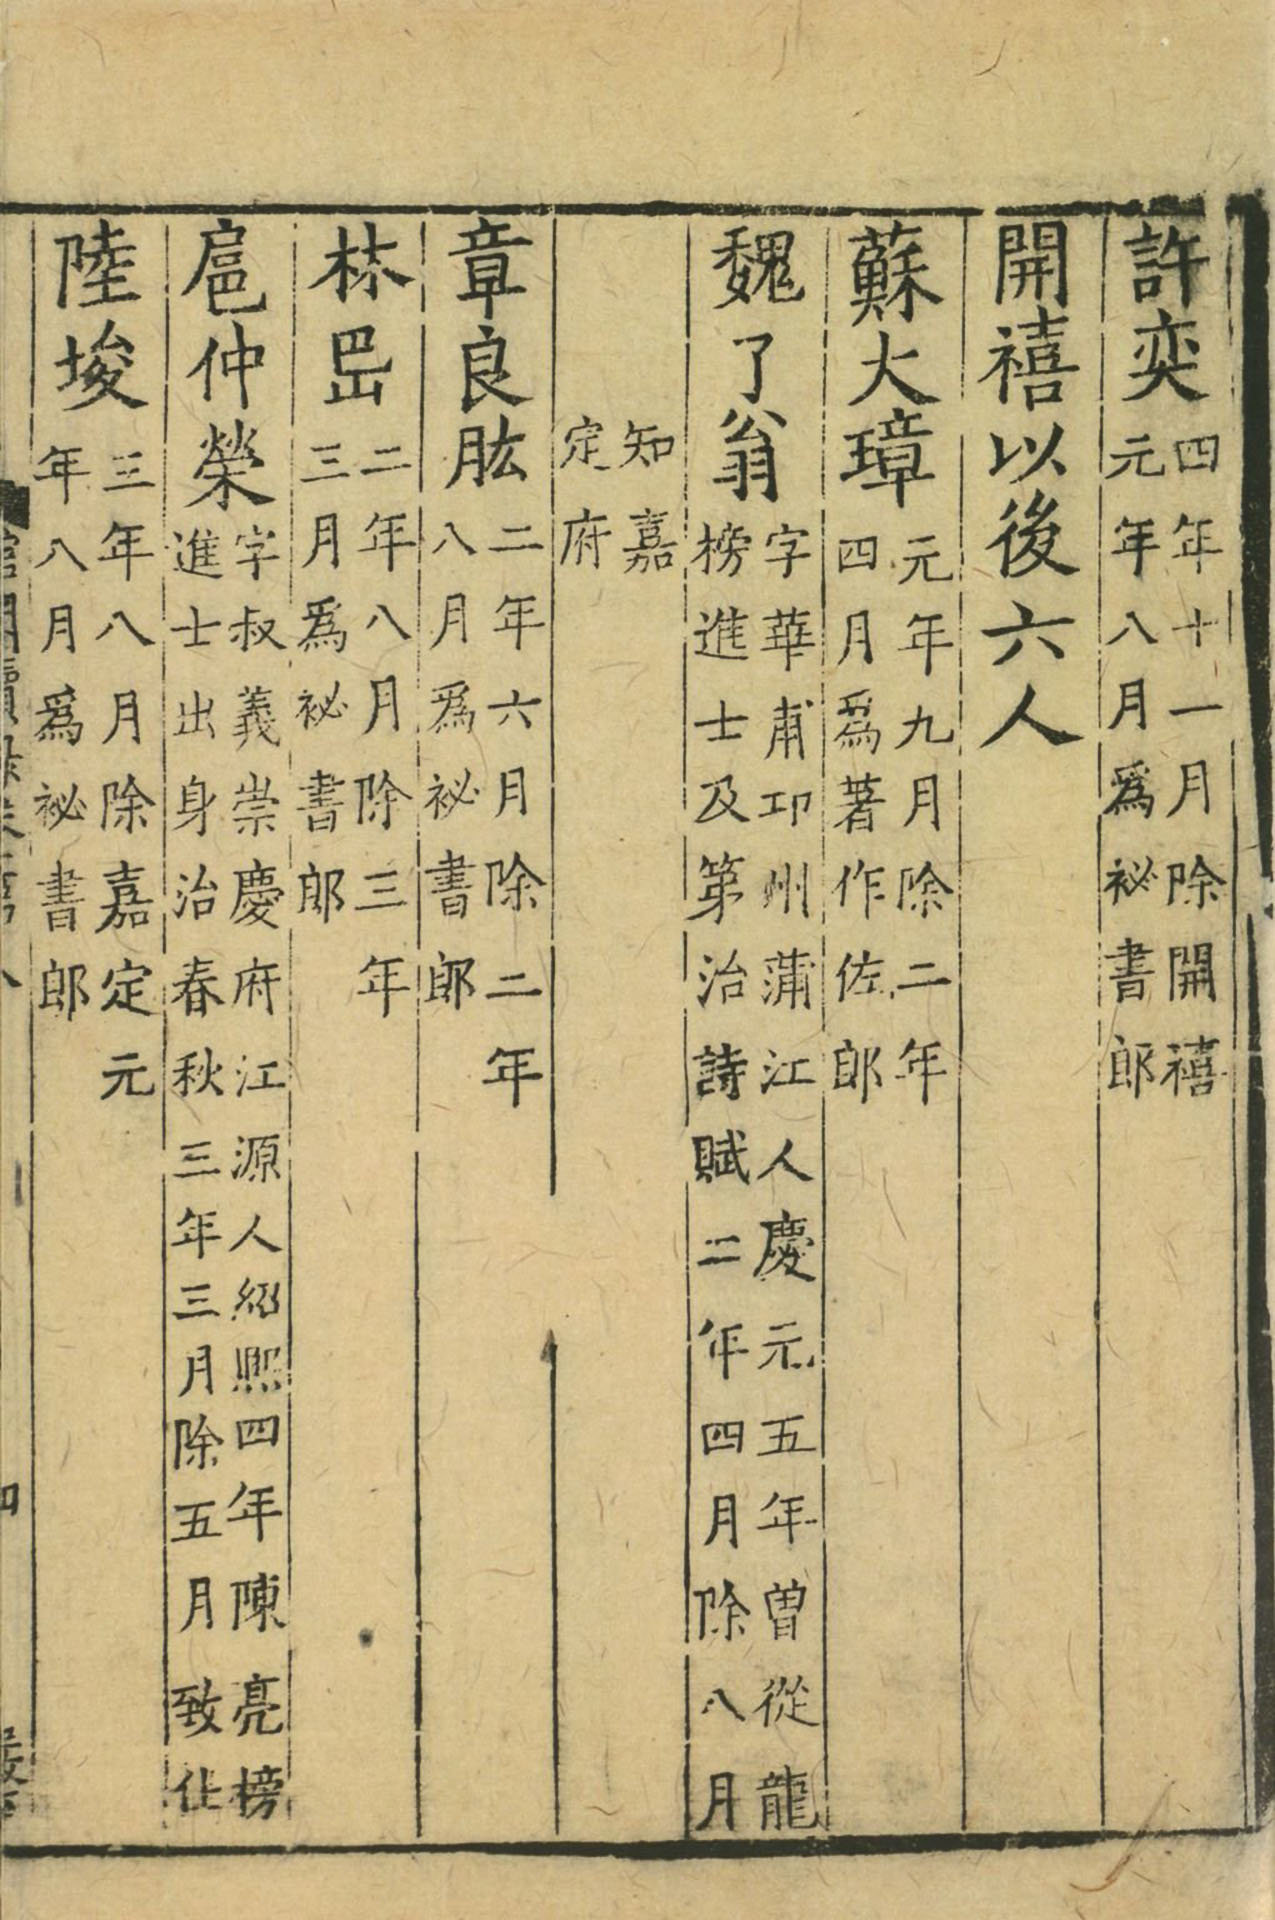 許奕四年十一月除開禧
元年八月爲祕書郎
開禧以後六人
蘇大璋元年九月除二年
四月爲著作佐郎
魏了翁字華甫邛州蒲江人慶元五年曾從龍
榜進士及第治詩賦二年四月除八月
知嘉
定府
章良肱二年六月除二年
八月爲祕書郎
林岊二年八月除三年
三月爲祕書郎
扈仲榮字叔義崇慶府江源人紹熙四年陳亮榜
進士出身治春秋三年三月除五月致仕
陸埈三年八月除嘉定元
年八月爲祕書郎